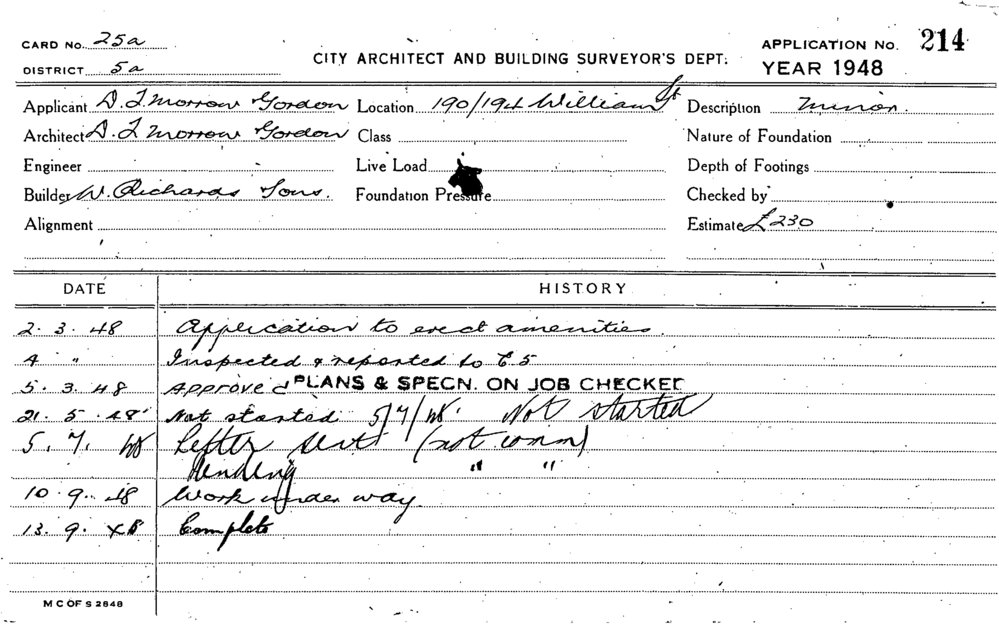 CARD No. 25a
DISTRICT 5a
CITY ARCHITECT AND BUILDING SURVEYOR'S DEPT.
APPLICATION No. 214
YEAR 1948
Applicant D. J. Morrow Gordon Location 190/194 William St Description Minor.
Architect D. J. Morrow Gordon Class Nature of Foundation
Engineer Live Load Depth of Footings
Builder W. Richards Sons. Foundation Pressure Checked by
Alignment Estimate £230
DATE HISTORY
2. 3. 48 Application to erect amenities.
4 " Inspected & reported to C5
5. 3. 48 Approved PLANS & SPECN. ON JOB CHECKED
21. 5. 48 Not started 5/7/48. Not started
5. 7. 48 Letter sent (not comm)
Pending " "
10. 9. 48 Work under way.
13. 9. 48 Complete
M C OF S 2848